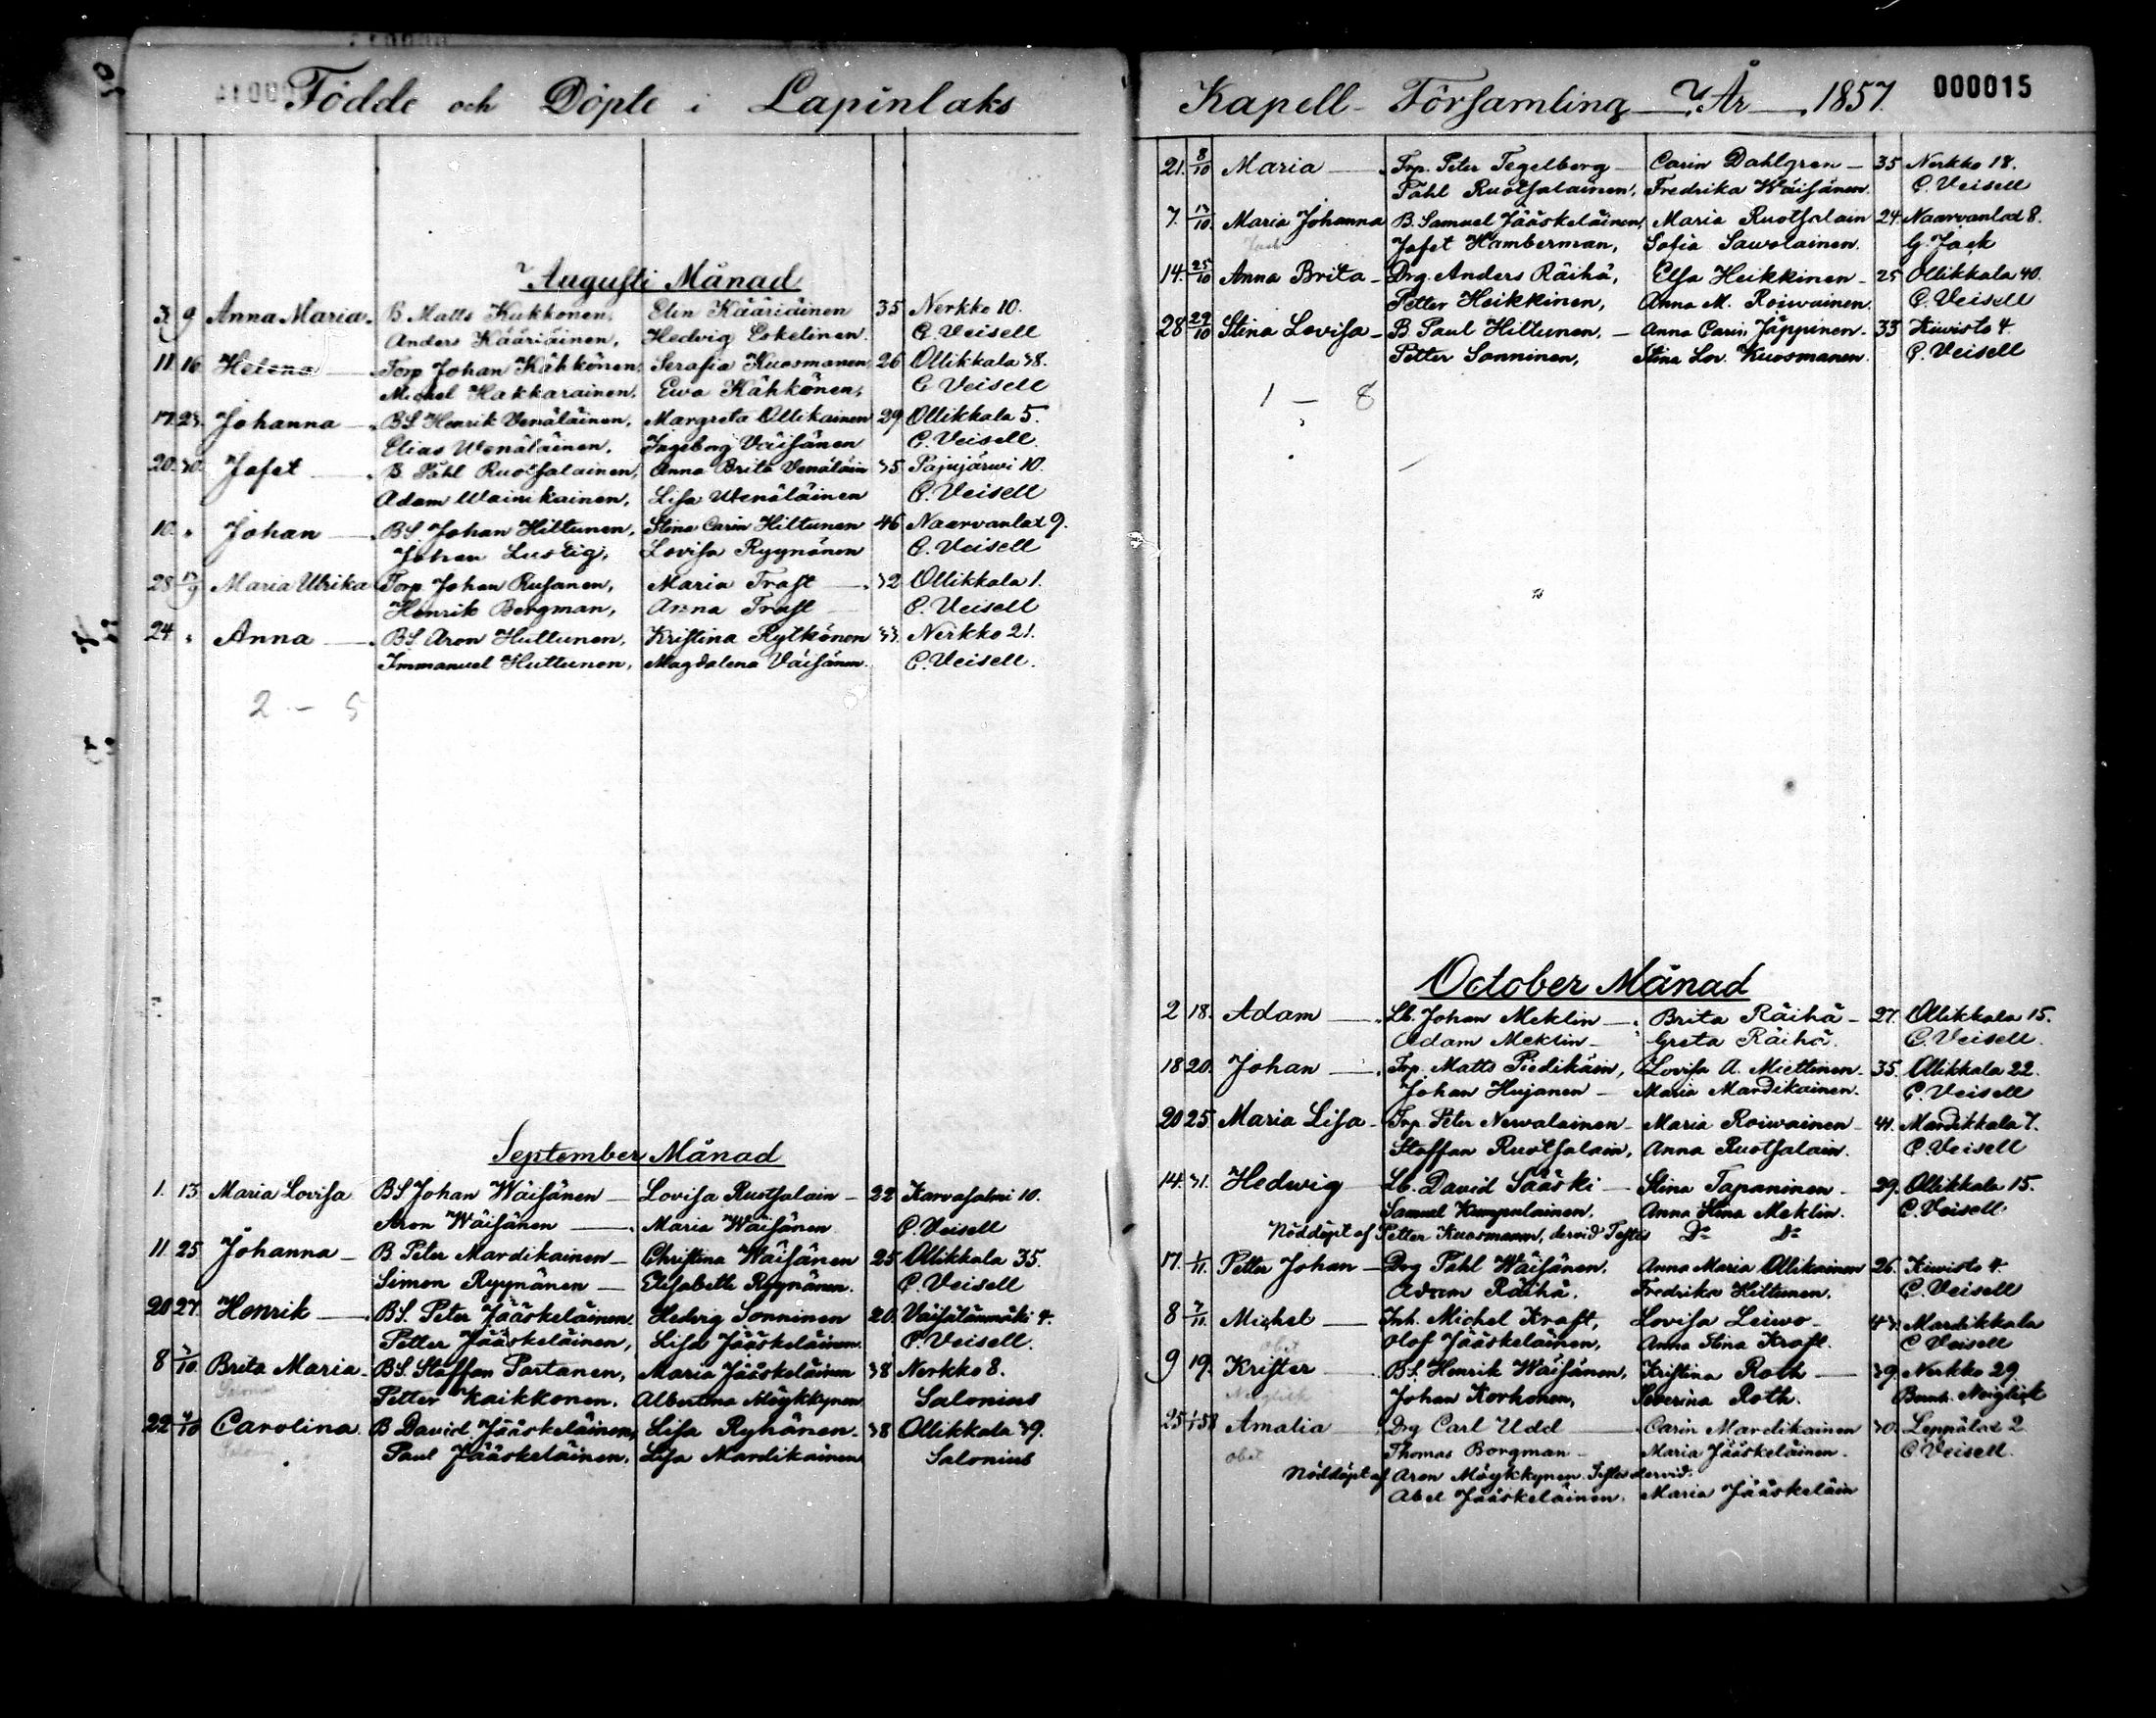 Födde och Döpte i Lapinlaks
Augusti Månad
3. 9 Anna Maria. B. Matts Kukkonen, Elin Kääriäinen 35 Nerkko 10.
Anders Kääriäinen, Hedvig Eskelinen. C. Veisell
11. 16. Helena Torp. Johan Kähkönen, Serafia Kuosmanen 26 Ollikkala 38.
Michel Hakkarainen, Ewa Kähkönen, C Veisell
17. 23. Johanna BS. Henrik Venäläinen, Margreta Ollikainen 29 Ollikkala 5.
Elias Wenäläinen, Ingeborg Väisänen C. Veisell
20. 30. Jafet B. Påhl Ruotsalainen, Anna Brita Venäläin 35 Pajujärwi 10.
Adam Wainikainen, Lisa Wenäläinen C. Veisell
10. " Johan BS. Johan Hiltunen, Stina Carin Hiltunen 46 Naarvanlax 9.
Johan Lustig, Lovisa Ryynänen C. Veisell
28 13/9 Maria Ulrika Torp. Johan Rusanen, Maria Trast 32 Ollikkala 1.
Henrik Bergman, Anna Trast C. Veisell
24 " Anna BS. Aron Huttunen, Kristina Rytkönen 33. Nerkko 21.
Immanuel Huttunen, Magdalena Väisänen. C. Veisell.
2 - 5
September Månad
1. 13 Maria Lovisa BS Johan Wäisänen Lovisa Ruotsalain 22 Karvasalmi 10.
Aron Wäisänen Maria Wäisänen C. Veisell
11. 25 Johanna B Peter Mardikainen Christina Wäisänen 25 Ollikkala 35.
Simon Ryynänen Elisabeth Ryynänen. C. Veisell
20 27. Henrik BS. Peter Jääskeläinen Hedvig Sonninen 20. Väisälänmäki 4.
Petter Jääskeläinen, Lisa Jääskeläinen. C. Veisell.
8 3/10. Brita Maria BS. Staffan Partanen, Maria Jääskeläinen 38 Nerkko 8.
Salonius Petter Kaikkonen, Albertina Möykkynen Salonius
22 4/10 Carolina. B David Jääskeläinen, Lisa Ryhänen. 38 Ollikkala 39.
Paul Jääskeläinen. Lisa Mardikainen Salonius
Kapell-Församling År 1857. 000015
21. 8/10 Maria Trp. Peter Tegelberg Carin Dahlgren 35 Nerkko 18.
Påhl Ruotsalainen, Fredrika Wäisänen. C. Veisell
7. 13/10. Maria Johanna B. Samuel Jääskeläinen, Maria Ruotsalain 24. Naarvanlax 8.
Jack Jafet Hamberman, Sofia Sawolainen. G. Jack
14. 25/10 Anna Brita Drg. Anders Räihä, Elsa Heikkinen 25 Ollikkala 40.
Petter Heikkinen, Anna M. Roiwainen. C. Veisell
28 29/10 Stina Lovisa B. Paul Hiltunen, Anna Carin Jäppinen. 33 Kiwisto 4.
Petter Sonninen, Stina Lov. Kuosmanen. C. Veisell
1 - 8
October Månad
2 18. Adam Lb. Johan Meklin Brita Räihä 27. Ollikkala 15.
Adam Meklin Greta Räihä. C. Veisell.
18 20. Johan Trp. Matts Piedikäin, Lovisa A. Miettinen 35. Ollikkala 22.
Johan Hujanen Maria Mardikainen. C. Veisell
20 25 Maria Lisa Trp. Peter Nerwalainen Maria Roiwainen 41. Mardikkala 7.
Staffan Ruotsalain, Anna Ruotsalain. C. Veisell
14. 31. Hedwig Lb. David Sääski Stina Tapaninen 29. Ollikkala 15.
Samuel Kumpulainen. Anna Stina Meklin. C. Veisell.
Nöddöpt af Petter Kuosmanen, dervid Testes Do Do
17. 1/11. Petter Johan Drg Påhl Wäisänen, Anna Maria Ollikainen 26. Kiwisto 4.
Adam Räihä. Fredrika Hiltunen. C. Veisell
8 7/11. Michel Inh. Michel Kraft, Lovisa Leiwo 43. Mardikkala
obit Olof Jääskeläinen, Anna Stina Kraft. C Veisell
9 19. Krister BS. Henrik Wäisänen, Kristina Roth 39. Nerkko 29
Neiglick Johan Korhonen, Severina Roth. Bernh. Neiglick
25 1/1 58 Amalia Drg Carl Udd Carin Mardikainen 30. Leppälax 2
obit Thomas Borgman Maria Jääskeläinen. C. Veisell.
Nöddöpt af Aron Möykkynen. Testes dervid:
Abel Jääskeläinen. Maria Jääskeläin